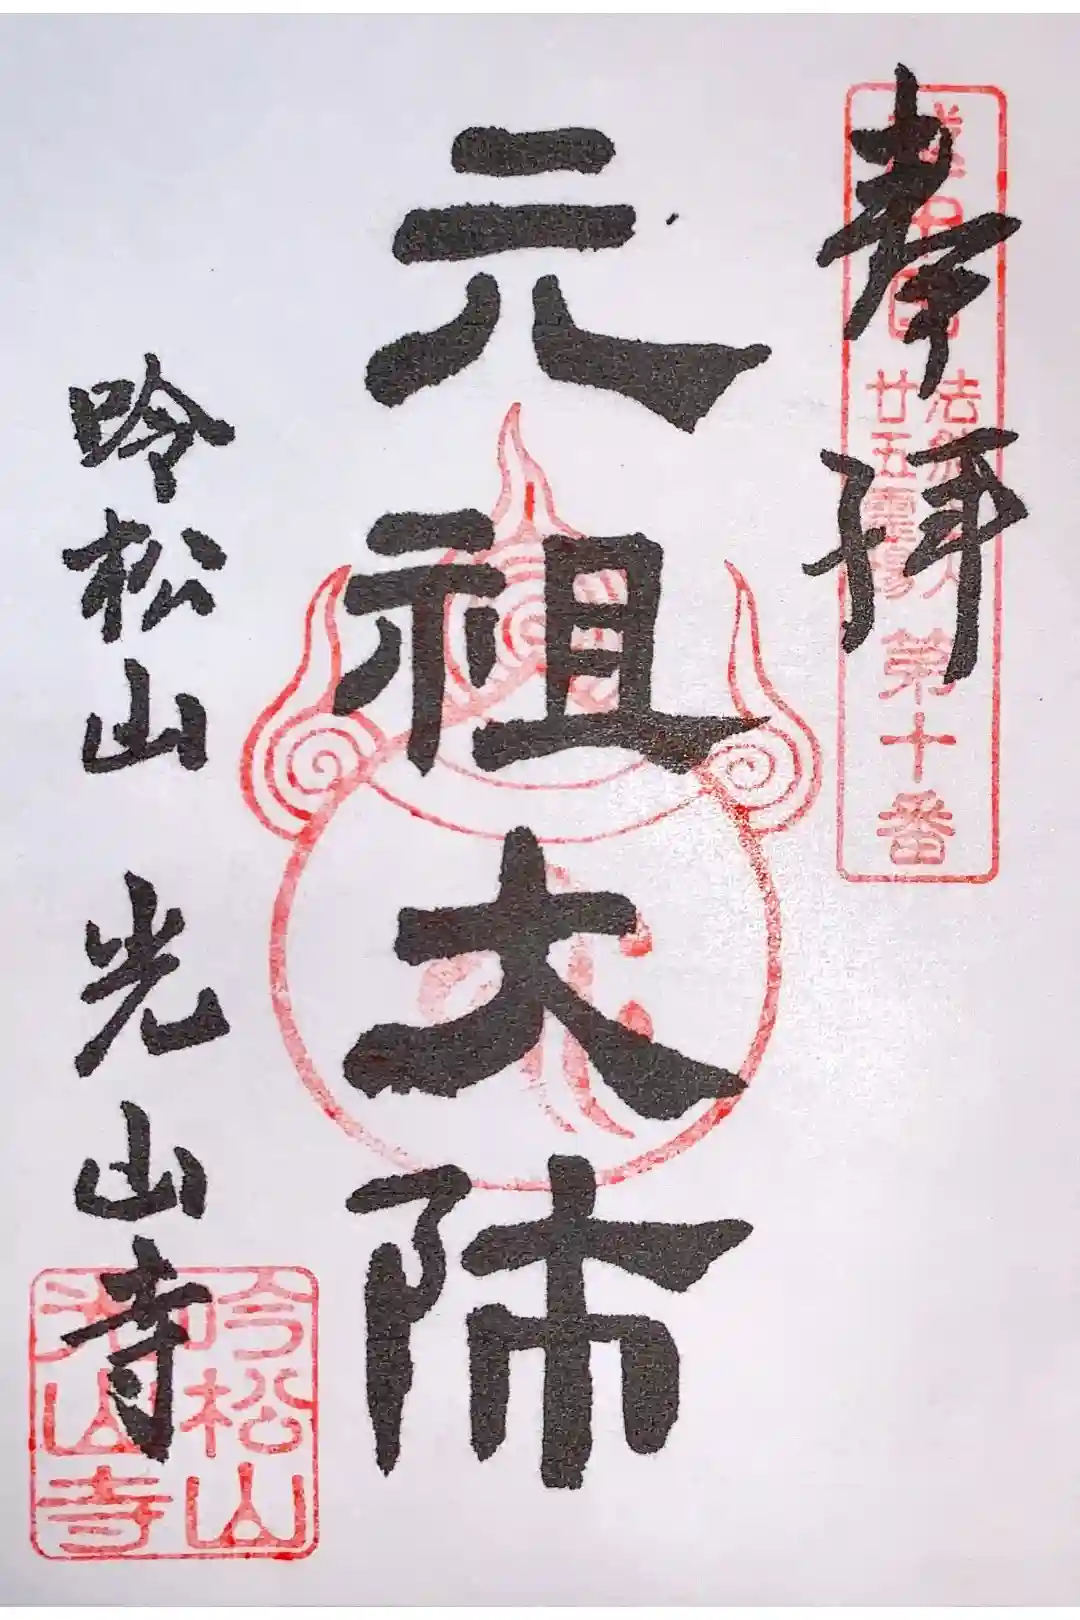 奉拝
法然
廿五霊場
第十番
元祖大師
吟松山 光山寺
吟松山
光山寺